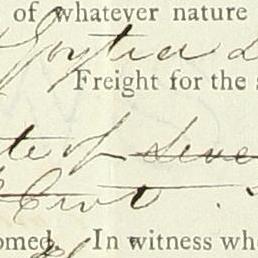 of whatever nature
Freight for the s
te of Seve
Cwt .
omed. In witness whe